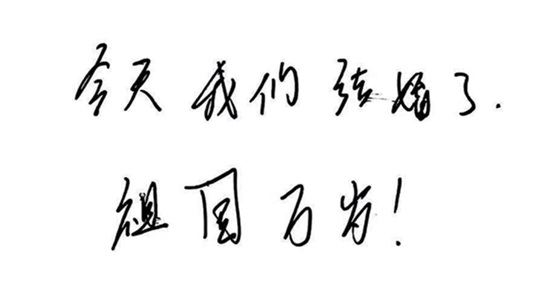 今天我们结婚了.
祖国万岁!